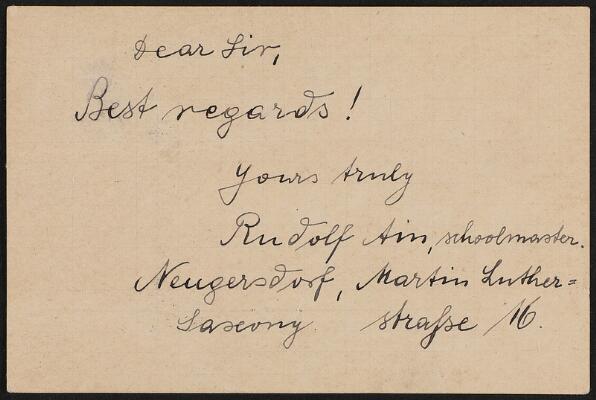 Dear Sir,
Best regards!
Yours truly
Rudolf Ain, schoolmaster.
Neugersdorf, Martin Luther=
Saxony straße 16.